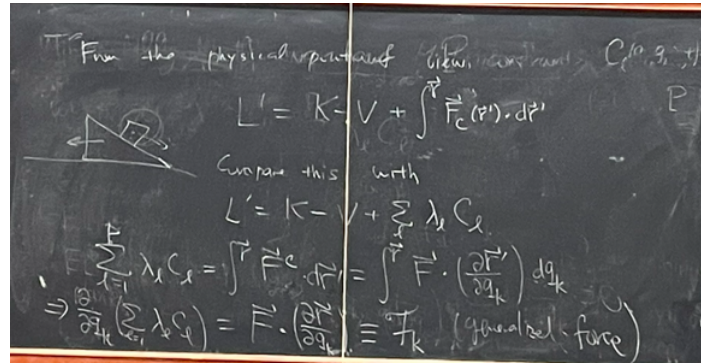 From the physical point of view, C_ℓ(q, q̇, t)
P
L' = K - V + ∫^{r⃗} F⃗_c(r⃗')·dr⃗'
Compare this with
L' = K - V + Σ_ℓ λ_ℓ C_ℓ
Σ_{ℓ=1}^{P} λ_ℓ C_ℓ = ∫^{r⃗} F⃗^c·dr⃗' = ∫^{r⃗} F⃗·(∂r⃗'/∂q_k) dq_k
⇒ ∂/∂q_k (Σ_{ℓ=1} λ_ℓ C_ℓ) = F⃗·(∂r⃗/∂q_k) ≡ F_k (generalized force)